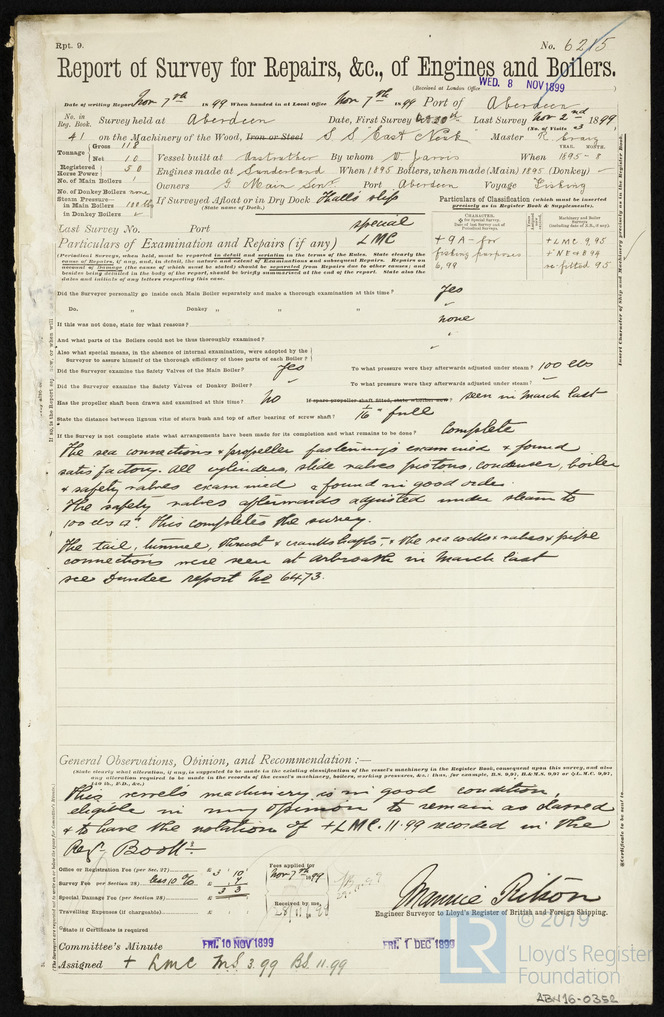 Rpt. 9.
No. 6215
Report of Survey for Repairs, &c., of Engines and Boilers.
(Received at London Office WED. 8 NOV 1899
Date of writing Report Nov 7th 1899 When handed in at Local Office Nov 7th 1899 Port of Aberdeen
No. in Reg. Book. Survey held at Aberdeen Date, First Survey Oct 30th Last Survey Nov 2nd 1899
(No. of Visits 3)
41 on the Machinery of the Wood, Iron or Steel S S "East Neuk" Master R. Craig
Tonnage Gross 118
Net 10 Vessel built at Anstruther By whom W. Jarvis When 1895-8
YEAR. MONTH.
Registered Horse Power 50 Engines made at Sunderland When 1895 Boilers, when made (Main) 1895 (Donkey) —
No. of Main Boilers 1
No. of Donkey Boilers none Owners G. Main Senr Port Aberdeen Voyage Fishing
Steam Pressure in Main Boilers 100 lbs If Surveyed Afloat or in Dry Dock Hall's slip
(State name of Dock.)
in Donkey Boilers
Particulars of Classification (which must be inserted precisely as in Register Book & Supplements).
Last Survey No. Port special
Particulars of Examination and Repairs (if any) LMC
(Periodical Surveys, when held, must be reported in detail and seriatim in the terms of the Rules. State clearly the cause of Repairs, if any, and, in detail, the nature and extent of Examinations and subsequent Repairs. Repairs on account of Damage (the cause of which must be stated) should be separated from Repairs due to other causes; and besides being detailed in the report, should be briefly summarized at the end of the report. State also the dates and initials of any letters respecting this case.
CHARACTER.
Machinery and Boiler Surveys
+ 9A - for fishing purposes 6,99
+ LMC 9,95
+ NE & B 94
re fitted 95
Did the Surveyor personally go inside each Main Boiler separately and make a thorough examination at this time? Yes
Do. " Donkey " " " "
If this was not done, state for what reasons? none
And what parts of the Boilers could not be thoroughly examined? "
Also what special means, in the absence of internal examination, were adopted by the Surveyor to assure himself of the thorough efficiency of those parts of each Boiler? "
Did the Surveyor examine the Safety Valves of the Main Boiler? Yes To what pressure were they afterwards adjusted under steam? 100 lbs
Did the Surveyor examine the Safety Valves of Donkey Boiler? To what pressure were they afterwards adjusted under steam?
Has the propeller shaft been drawn and examined at this time? No If spare propeller shaft fitted, state whether new? seen in March last
State the distance between lignum vitæ of stern bush and top of after bearing of screw shaft? 1/16" full
If the Survey is not complete state what arrangements have been made for its completion and what remains to be done? Complete
The sea connections & propeller fastenings examined & found
satisfactory. All cylinders, slide valves pistons, condenser, boiler
& safety valves examined & found in good order.
The safety valves afterwards adjusted under steam to
100 lbs □". This completes the survey.
The tail, tunnel, thrust & crankshafts, & the sea cocks & valves & pipe
connections were seen at Arbroath in March last
see Dundee report No 6473.
General Observations, Opinion, and Recommendation :—
(State clearly what alteration, if any, is suggested to be made in the existing classification of the vessel's machinery in the Register Book, consequent upon this survey, and also any alteration required to be made in the records of the vessel's machinery, boilers, working pressures, &c.: thus, for example, B.S. 9,97, B.&M.S. 9,97 or ✠L.M.C. 9,97, 140 lb., F.D., &c.)
This vessel's machinery is in good condition,
eligible in my opinion to remain as classed
& to have the notation of +LMC. 11.99 recorded in the
Reg. Book.
Office or Registration Fee (per Sec. 27) £ 3 : 10
Survey Fee (per Section 28) less 10% £ : 7
£ 3 3
Special Damage Fee (per Section 28) £
Travelling Expenses (if chargeable) £
Fees applied for Nov 7th 1899
Received by me, 28/11/99
Maurice Ritson
Engineer Surveyor to Lloyd's Register of British and Foreign Shipping.
State if Certificate is required
Committee's Minute FRI. 10 NOV 1899 FRI. 1 DEC 1899
Assigned + LMC MS 3.99 BS 11.99
© 2019
LR
Lloyd's Register
Foundation
ABN16-0352